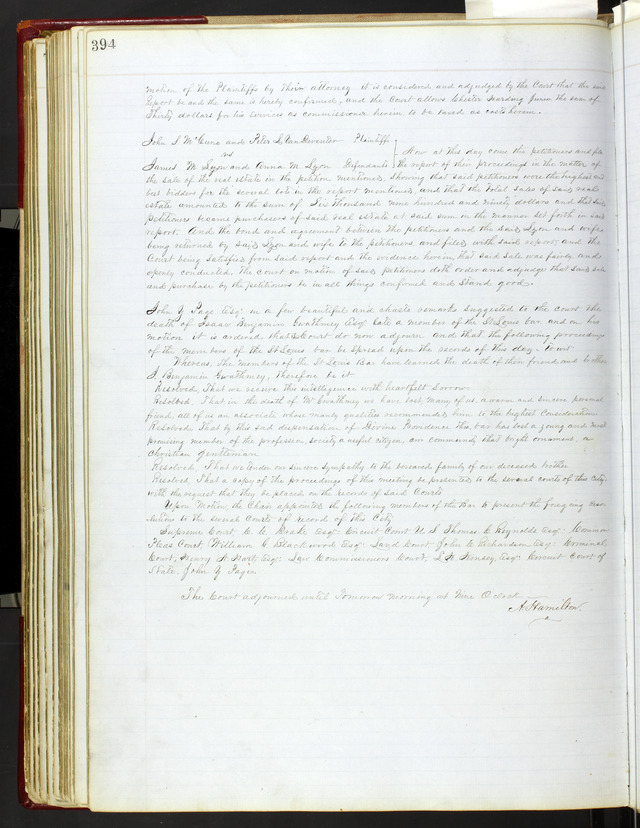 394
motion of the Plaintiffs by their attorney it is considered and adjudged by the Court that the said
report be and the same is hereby confirmed, and the Court allows Chester Harding Junr the sum of
Thirty dollars for his services as commissioner herein to be taxed as costs herein.
John S McCune and Peter L Van Deventer Plaintiffs
vs Now at this day come the petitioners and file
James M Lyon and Anna M Lyon Defendants the report of their proceedings in the matter of
the sale of the real estate in the petition mentioned, showing that said petitioners were the highest and
best bidders for the several lots in the report mentioned, and that the total sales of said real
estate amounted to the sum of Six thousand nine hundred and ninety dollars and that said
petitioners became purchasers of said real estate at said sum in the manner set forth in said
report. And the bond and agreement between the petitioners and the said Lyon and wife
being returned by said Lyon and wife to the petitioners and filed with said report; and the
Court being satisfied from said report and the evidence herein, that said sale was fairly and
openly conducted. The court on motion of said petitioners doth order and adjudge that said sale
and purchase by the petitioners be in all things confirmed and stand good.
John Y Page Esqr in a few beautiful and chaste remarks suggested to the court the
death of Isaac Benjamin Gwathmey Esq late a member of the St Louis bar and on his
motion it is ordered that the Court do now adjourn and that the following proceedings
of the members of the St Louis bar be spread upon the records of this day, to wit
Whereas, The members of the St Louis Bar have learned the death of their friend and brother
I Benjamin Gwathmey, therefore be it
Resolved, That we receive this intelligence with heartfelt sorrow
Resolved, That in the death of Mr Gwathmey we have lost, many of us, a warm and sincere personal
friend, all of us an associate whose manly qualities recommended him to the highest consideration
Resolved That by this sad dispensation of Divine Providence this bar has lost a young and most
promising member of the profession, society a useful citizen, and community that bright ornament, a
Christian gentleman
Resolved, That we tender our sincere sympathy to the bereaved family of our deceased brother
Resolved, That a copy of the proceedings of this meeting be presented to the several courts of this City,
with the request that they be placed on the records of said Courts
Upon Motion, the Chair appointed the following members of the Bar to present the foregoing reso-
lutions to the several Courts of record of this City
Supreme Court, C. D. Drake Esqr Circuit Court U. S. Thomas C Reynolds Esqr Common
Pleas Court, William C. Blackwood Esqr Land Court, John C. Richardson Esqr Criminal
Court, Henry A Esqr Law Commissioners Court, Esqr Circuit Court of
State, John Y Page
The Court adjourned until Tomorrow morning at Nine Oclock
A. Hamilton